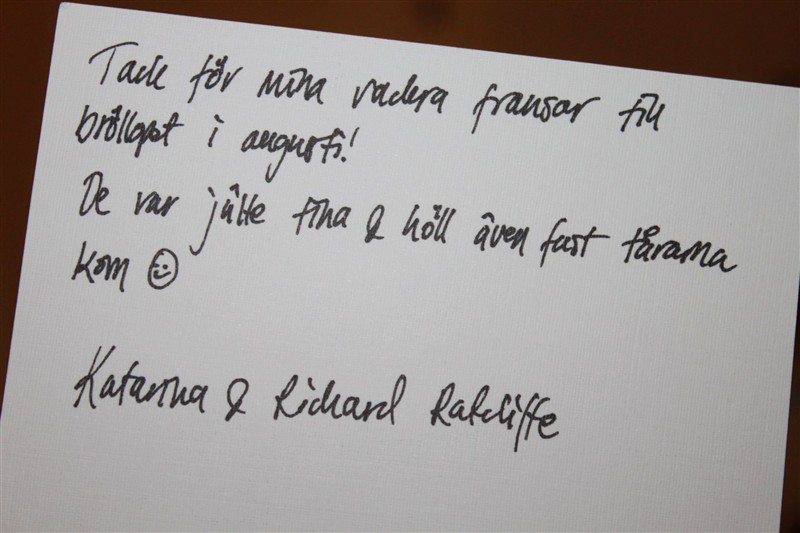 Tack för mina vackra fransar till
bröllopet i augusti!
De var jätte fina & höll även fast tårarna
kom ☺
Katarina & Richard Ratcliffe